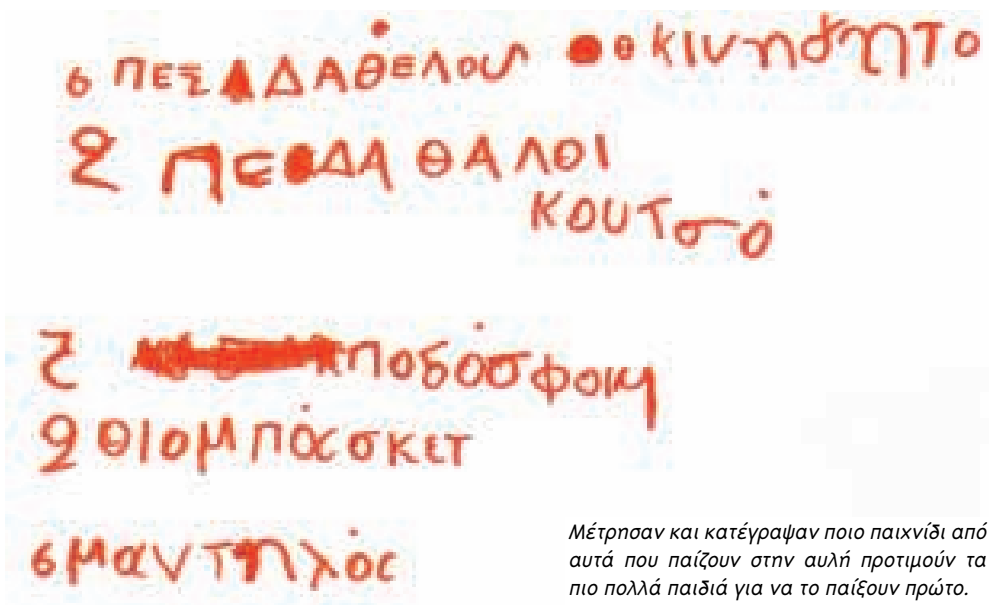 6 ΠΕΣ ΔΑΘΕΛΟυν κινηδητο
2 ΠΕ ΔΑ ΘΑΛΟΙ
ΚΟυΤσό
2 ποδόσφοιη
2 θιομπάσκετ
6 μαντηλός
Μέτρησαν και κατέγραψαν ποιο παιχνίδι από
αυτά που παίζουν στην αυλή προτιμούν τα
πιο πολλά παιδιά για να το παίξουν πρώτο.